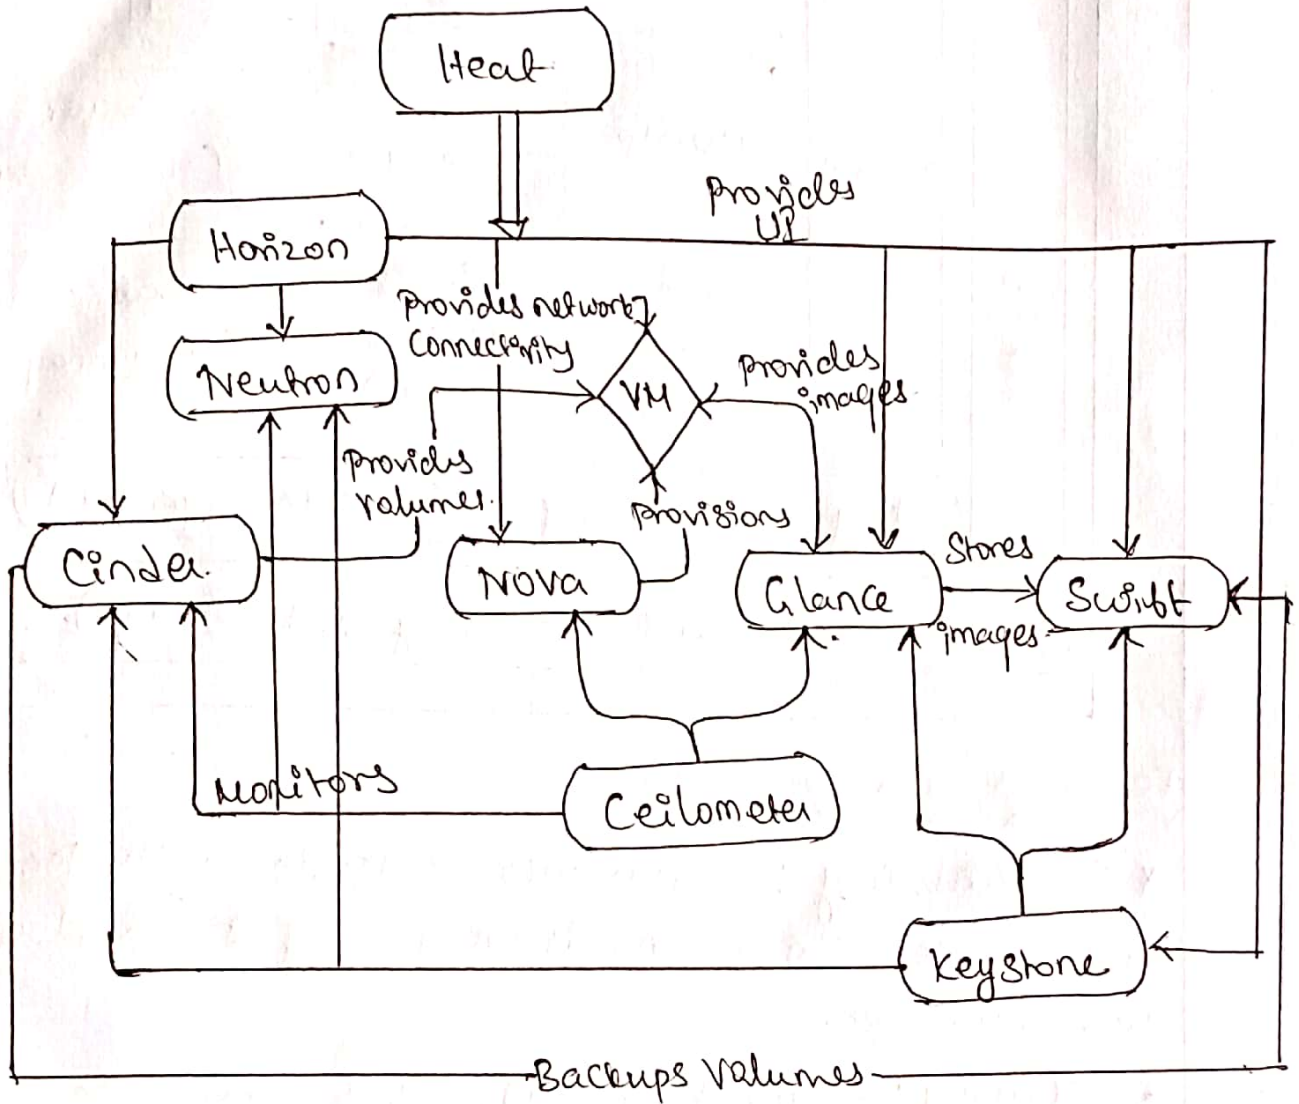 Heat
Provides
UI
Horizon
Provides network
Connectivity
Neutron
VM
Provides
images
Provides
Volumes
Provisions
Cinder
Nova
Glance
Stores
images
Swift
Monitors
Ceilometer
Keystone
Backups Volumes